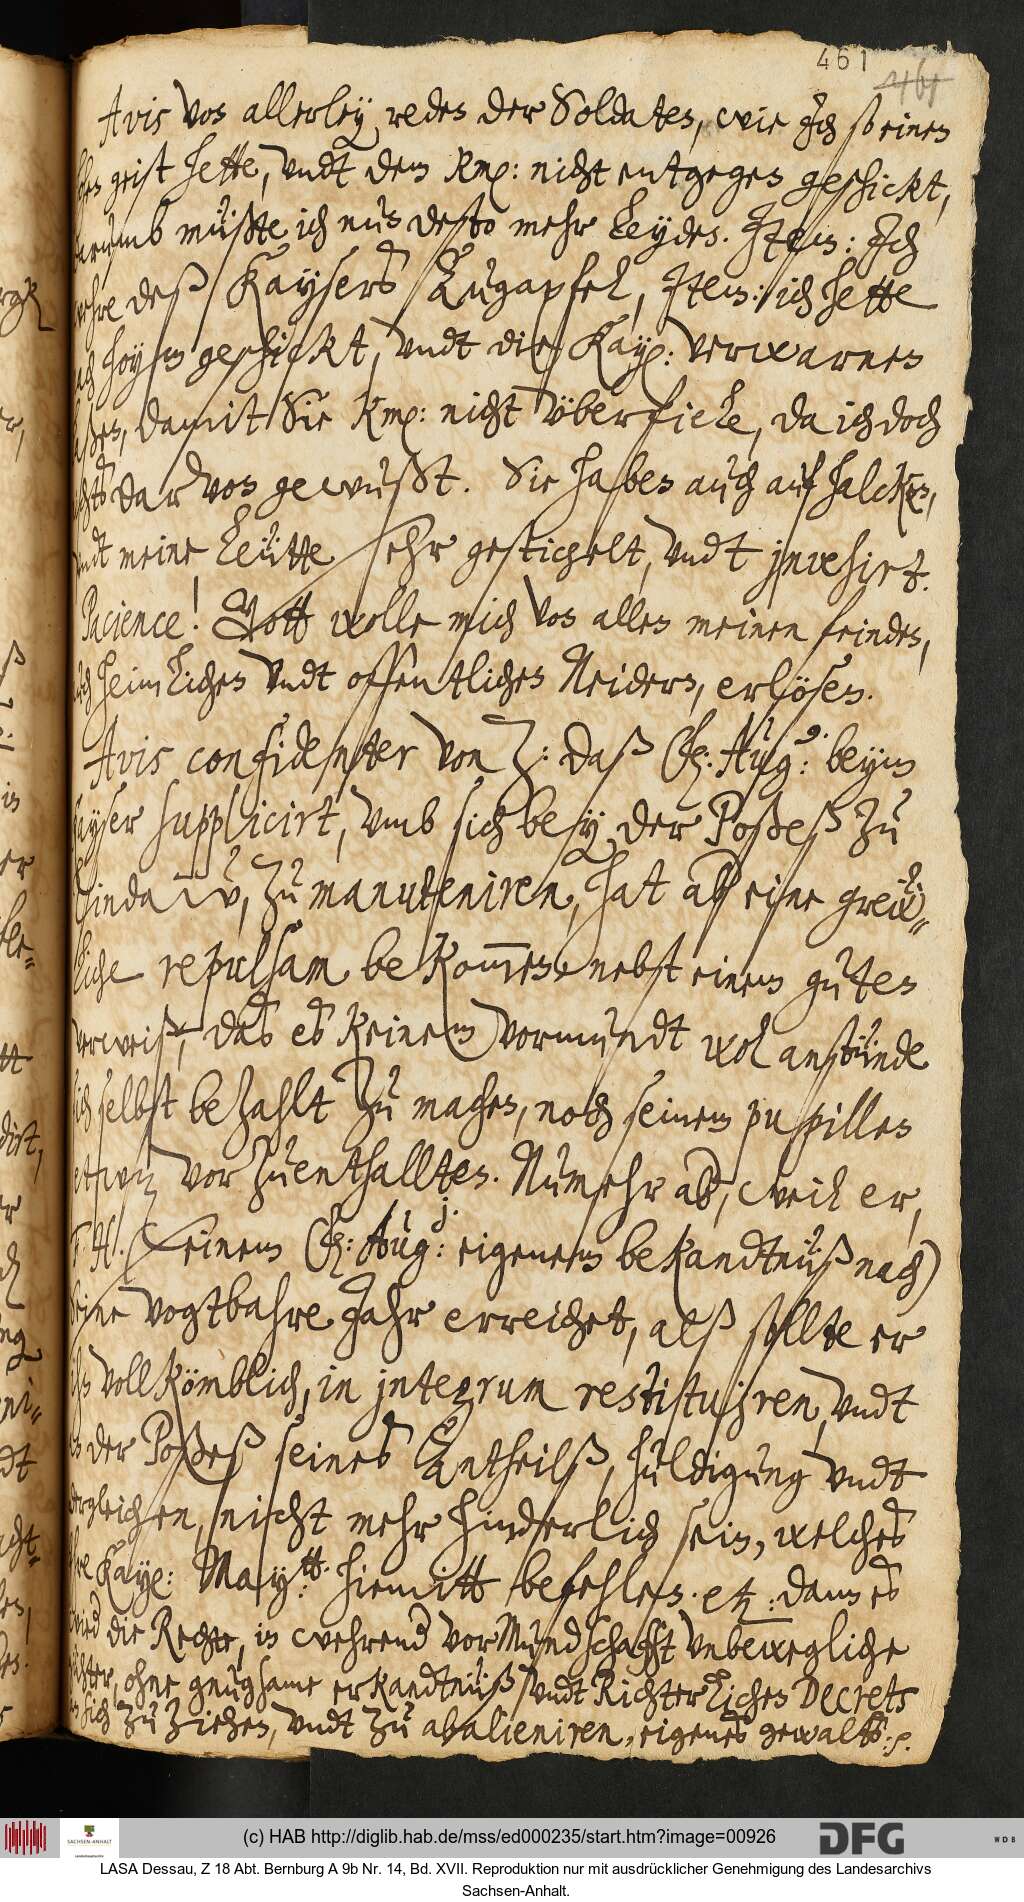 461
461
Avis von allerley reden der Soldaten, wie Ich so einen
geist hette, undt dem Rmr: nicht entgegen geschickt,
darumb müßte ich nun desto mehr leyden. Item: Ich
wehre deß Kaysers Augapfel, Item: ich hette
nach Hoym geschickt, undt die Kayß: verwarnen
laßen, damit Sie Rmr: nicht überfiele, da ich doch
nichts darvon gewußt. Sie haben auch auf Halcken,
undt meine leütte sehr gestichelt, undt invehirt.
Pacience! Gott wolle mich von allen meinen feinden,
auch heimlichen undt offentlichen Neidern, erlösen.
Avis confidenter von Z: daß F: Aug: beym
Kayser supplicirt, umb sich bey der Poßeß zu
Lindaw, zu manuteniren, hat ab eine greü-
liche repulsam bekommen nebst einem guten
verweiß, das es keinem vormundt wol anstünde
sich selbst bezahlt zu machen, noch seinem pupillen
etwas vor zu enthallten. Numehr ab, weil er,
F. H. (seinem F: Aug: eigenem bekandtnüß nach)
seine vogtbahre Jahr erreichet, alß sollte er
ihn vollkömblich, in integrum restituiren, undt
an der Poßeß seines Antheilß, huldigung undt
dergleichen, nicht mehr hinderlich sein, welches
Ihre Kayß: Maytt: hiemitt befehlen. etc: dann es
wied die Rechte, in wehrend vormundschafft unbewegliche
güter, ohne gnugsame erkandtnüß undt Richterlichen Decrets
an sich zu ziehen, undt zu abalieniren, eigenes gewalts.
(c) HAB http://diglib.hab.de/mss/ed000235/start.htm?image=00926
SACHSEN-ANHALT
DFG
WDB
LASA Dessau, Z 18 Abt. Bernburg A 9b Nr. 14, Bd. XVII. Reproduktion nur mit ausdrücklicher Genehmigung des Landesarchivs
Sachsen-Anhalt.